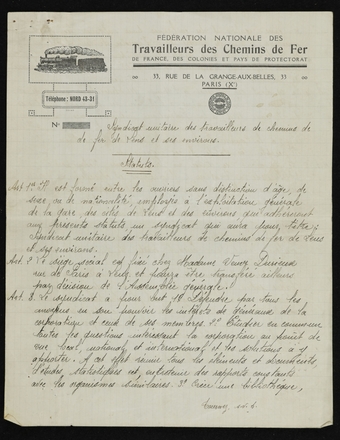 FÉDÉRATION NATIONALE DES
Travailleurs des Chemins de Fer
DE FRANCE, DES COLONIES ET PAYS DE PROTECTORAT
33, RUE DE LA GRANGE-AUX-BELLES, 33
PARIS (Xe)
Téléphone : NORD 43-31
N°
Syndicat unitaire des travailleurs de chemins de
de fer de Lens et ses environs.
Statuts
Art 1er Il est formé entre les ouvriers sans distinction d'âge, de
sexe ou de nationalité, employés à l'exploitation générale
de la gare, des cités de Lens et des environs qui adhéreront
aux présents statuts un syndicat qui aura pour titre :
Syndicat unitaire des travailleurs de chemins de fer de Lens
et ses environs.
Art 2 Le siège social est fixé chez Madame
rue de Paris à et pourra être transféré ailleurs
par décision de l'Assemblée générale.
Art. 3. Le syndicat a pour but 1° Défendre par tous les
moyens en son pouvoir les intérêts généraux de la
corporation et ceux de ses membres. 2° Etudier en commun
toutes les questions intéressant la corporation au point de
vue local, national et international et les solutions à y
apporter. A cet effet réunir tous les éléments et documents,
d'études, statistiques et, entretenir des rapports constants
avec les organismes similaires. 3° Créer une bibliothèque,